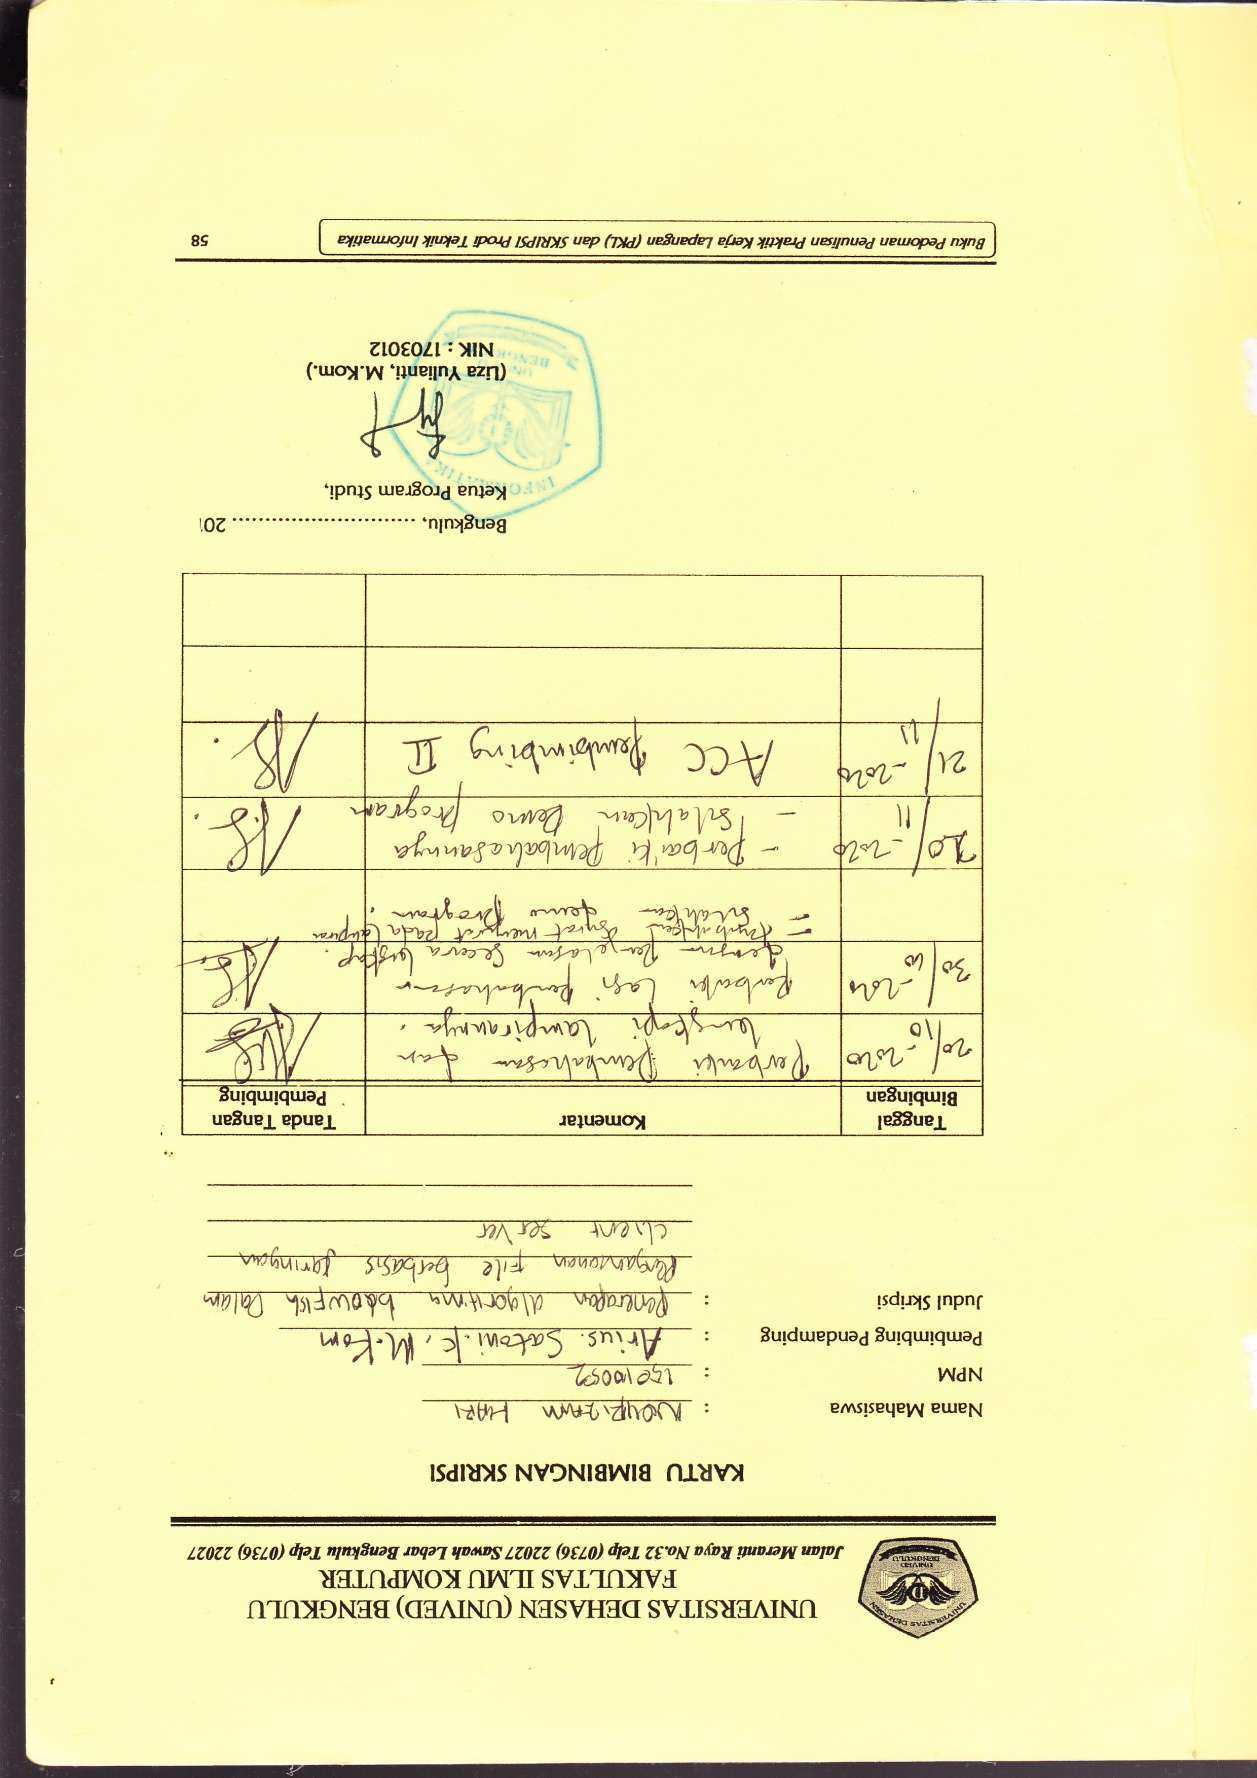 UNIVERSITAS DEHASEN (UNIVED) BENGKULU
FAKULTAS ILMU KOMPUTER
Jalan Meranti Raya No.32 Telp (0736) 22027 Sawah Lebar Bengkulu Telp (0736) 22027
UNIVERSITAS DEHASEN
UNIVED
BENGKULU
KARTU BIMBINGAN SKRIPSI
Nama Mahasiswa : HARI
NPM : 15010052
Pembimbing Pendamping : Arius. Satoni. K, M.Kom
Judul Skripsi : Penerapan algoritma blowfish Dalam
Pengamanan File berbasis Jaringan
client server
Tanggal Bimbingan Komentar Tanda Tangan Pembimbing
20/10 - 2020 Perbaiki Pembahasan dan
lengkapi lampirannya.
30/10 - 2020 Perbaiki lagi pembahasan
dengan Penjelasan secara lengkap.
- surat menyurat pada lampiran
- silahkan demo program.
20/11 - 2020 - Perbaiki Pembahasannya
- silahkan Demo program
21/11 - 2020 ACC Pembimbing II
Bengkulu, .............................. 201
Ketua Program Studi,
INFORMATIKA
BENGKULU
(Liza Yulianti, M.Kom.)
NIK : 1703012
Buku Pedoman Penulisan Praktik Kerja Lapangan (PKL) dan SKRIPSI Prodi Teknik Informatika 58